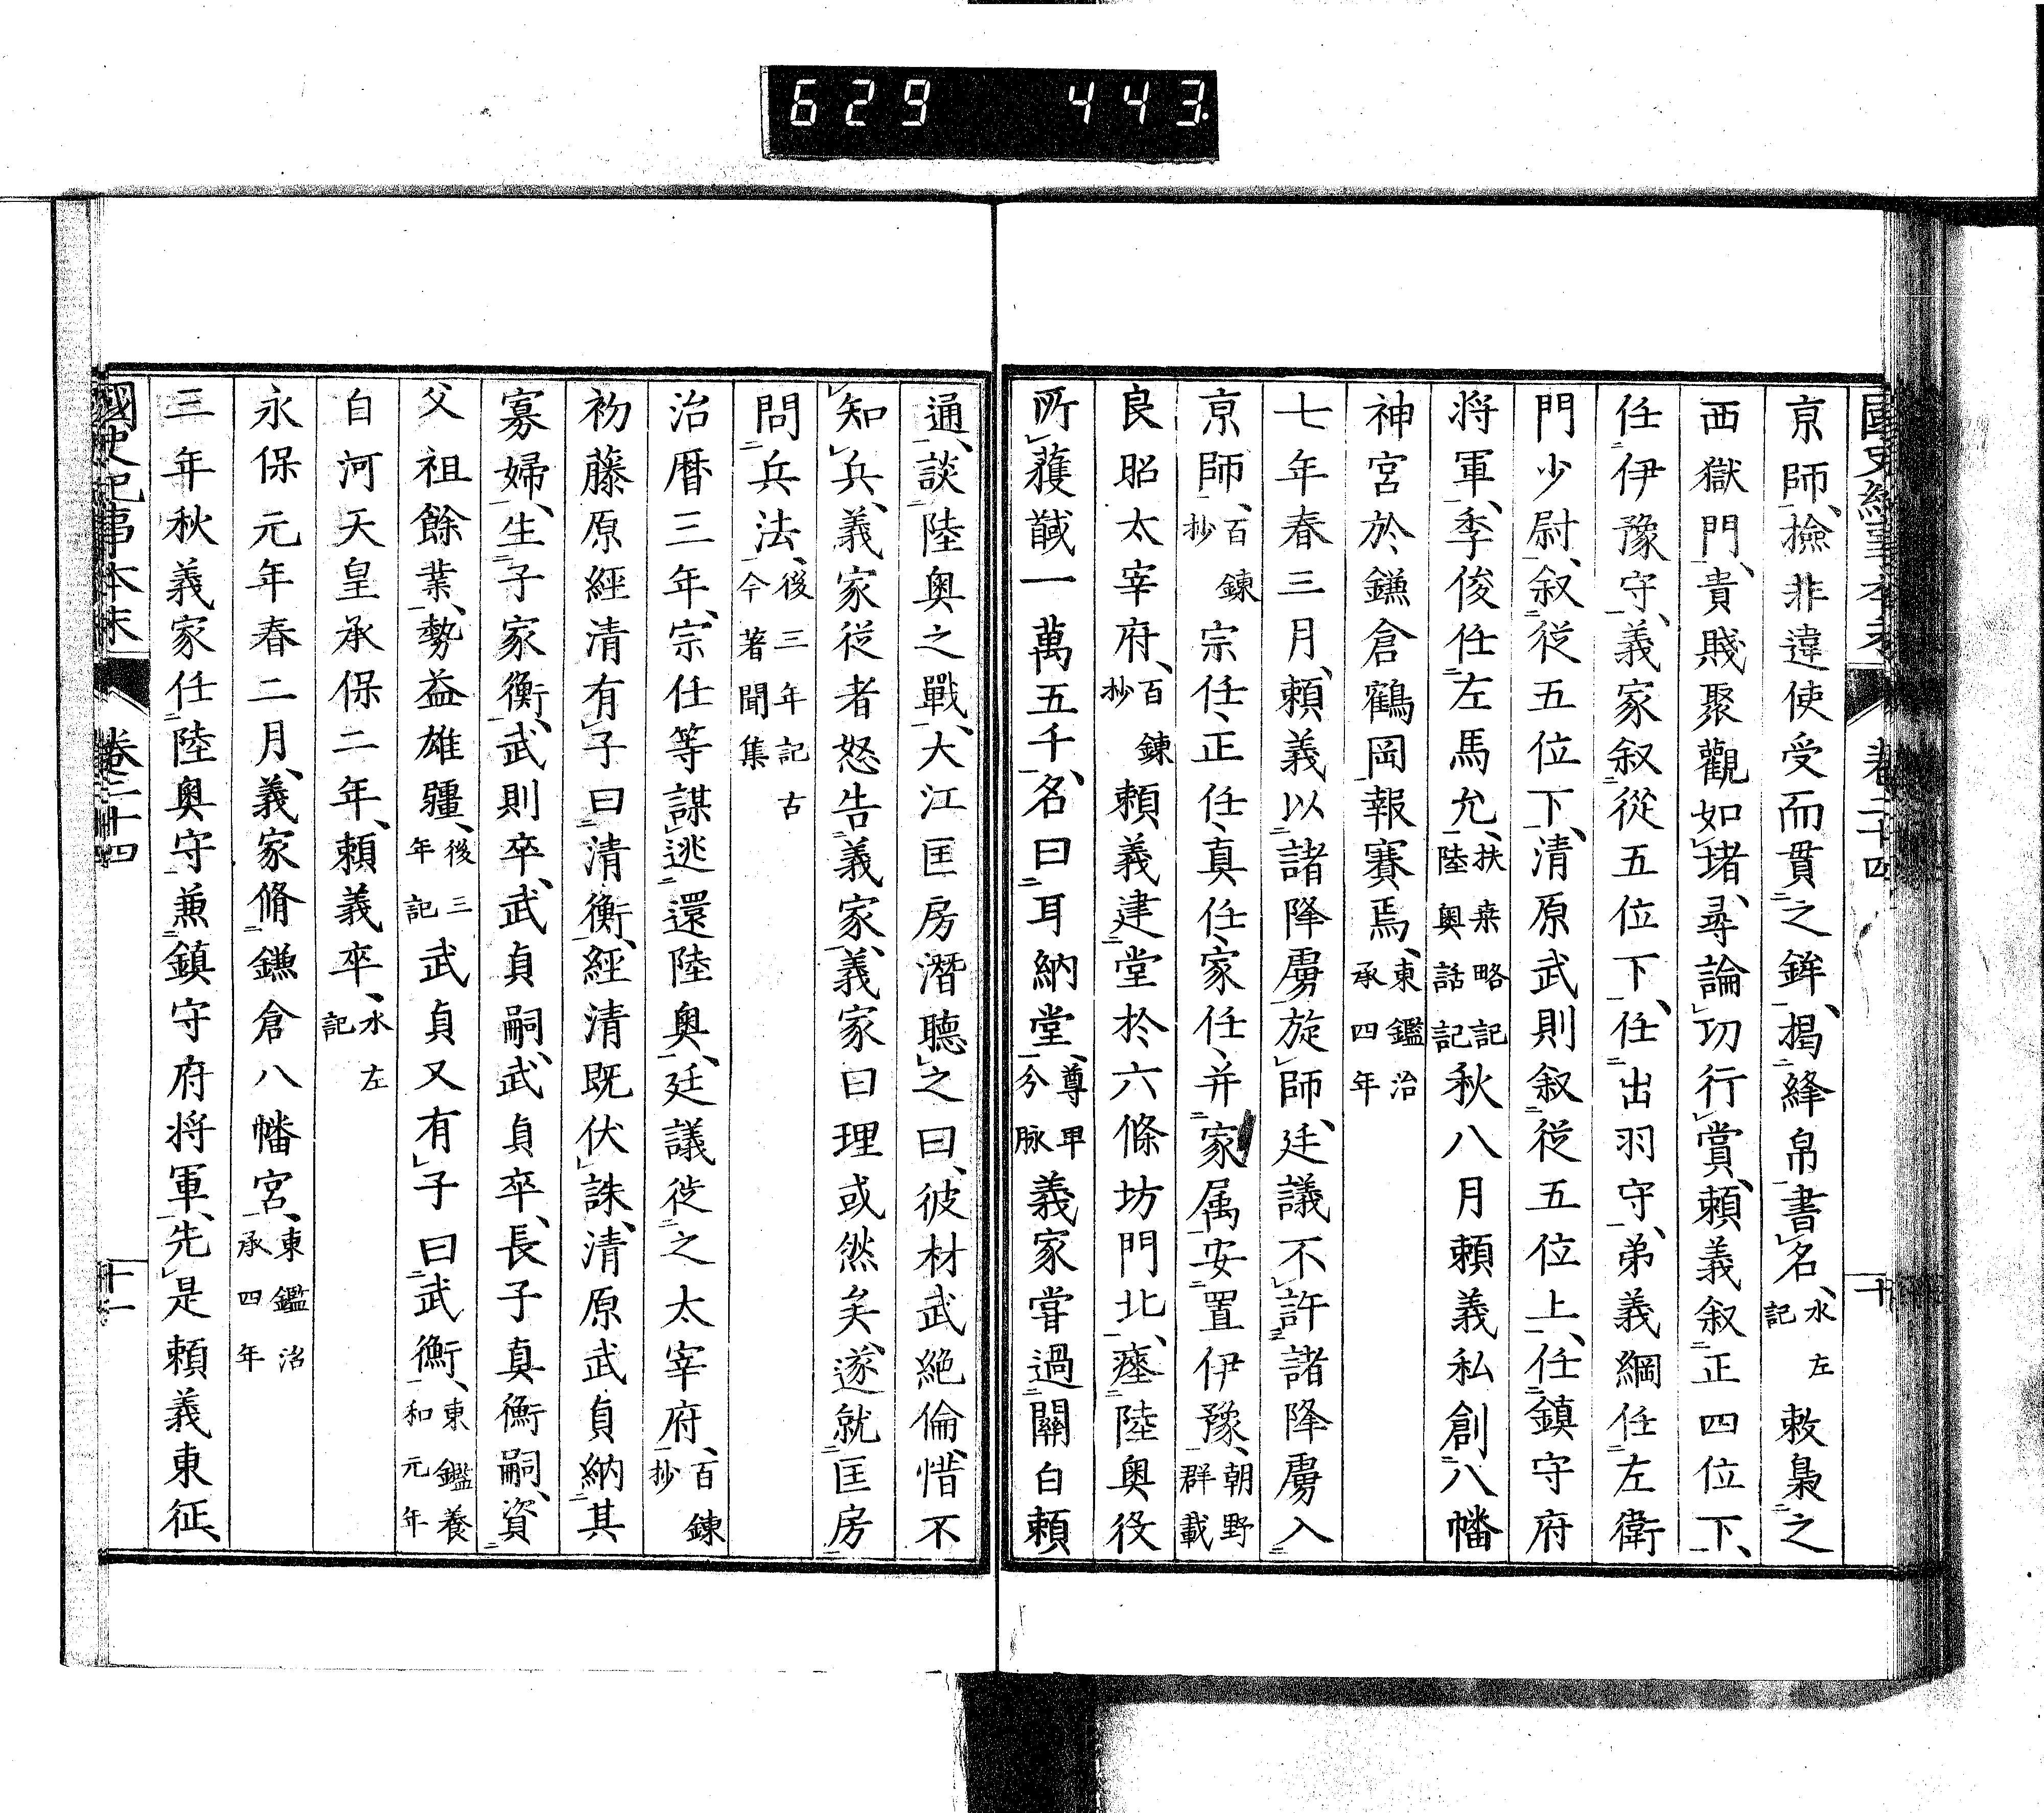 629 443
國史紀事本末 卷二十四 十
京師、撿非違使受而貫之鉾、揭絳帛書名、水左記敕梟之
西獄門、貴賤聚觀如堵、尋論功行賞、賴義叙正四位下、
任伊豫守、義家叙從五位下、任出羽守、弟義綱任左衛
門少尉、叙從五位下、清原武則叙從五位上、任鎮守府
将軍、季俊任左馬允、扶桒略記陸奥話記秋八月賴義私創八幡
神宮於鎌倉鶴岡報賽焉、東鑑治承四年
七年春三月、賴義以諸降虜旋師、廷議不許諸降虜入
京師、百鍊抄宗任、正任、真任、家任、并家属安置伊豫、朝野群載
良昭太宰府、百鍊抄賴義建堂於六條坊門北、瘞陸奥役
所獲馘一萬五千、名曰耳納堂、尊卑分脉義家嘗過關白賴
通、談陸奥之戰、大江匡房潛聽之曰、彼材武絶倫、惜不
知兵、義家從者怒告義家、義家曰理或然矣、遂就匡房
問兵法、後三年記古今著聞集
治暦三年、宗任等謀逃還陸奥、廷議徙之太宰府、百鍊抄
初藤原經清有子曰清衡、經清既伏誅、清原武貞納其
寡婦、生子家衡、武則卒、武貞嗣、武貞卒、長子真衡嗣、資
父祖餘業、勢益雄疆、後三年記武貞又有子曰武衡、東鑑養和元年
白河天皇承保二年、賴義卒、水左記
永保元年春二月、義家脩鎌倉八幡宮、東鑑治承四年
三年秋義家任陸奥守兼鎮守府将軍、先是賴義東征、
國史紀事本末 卷二十四 十一